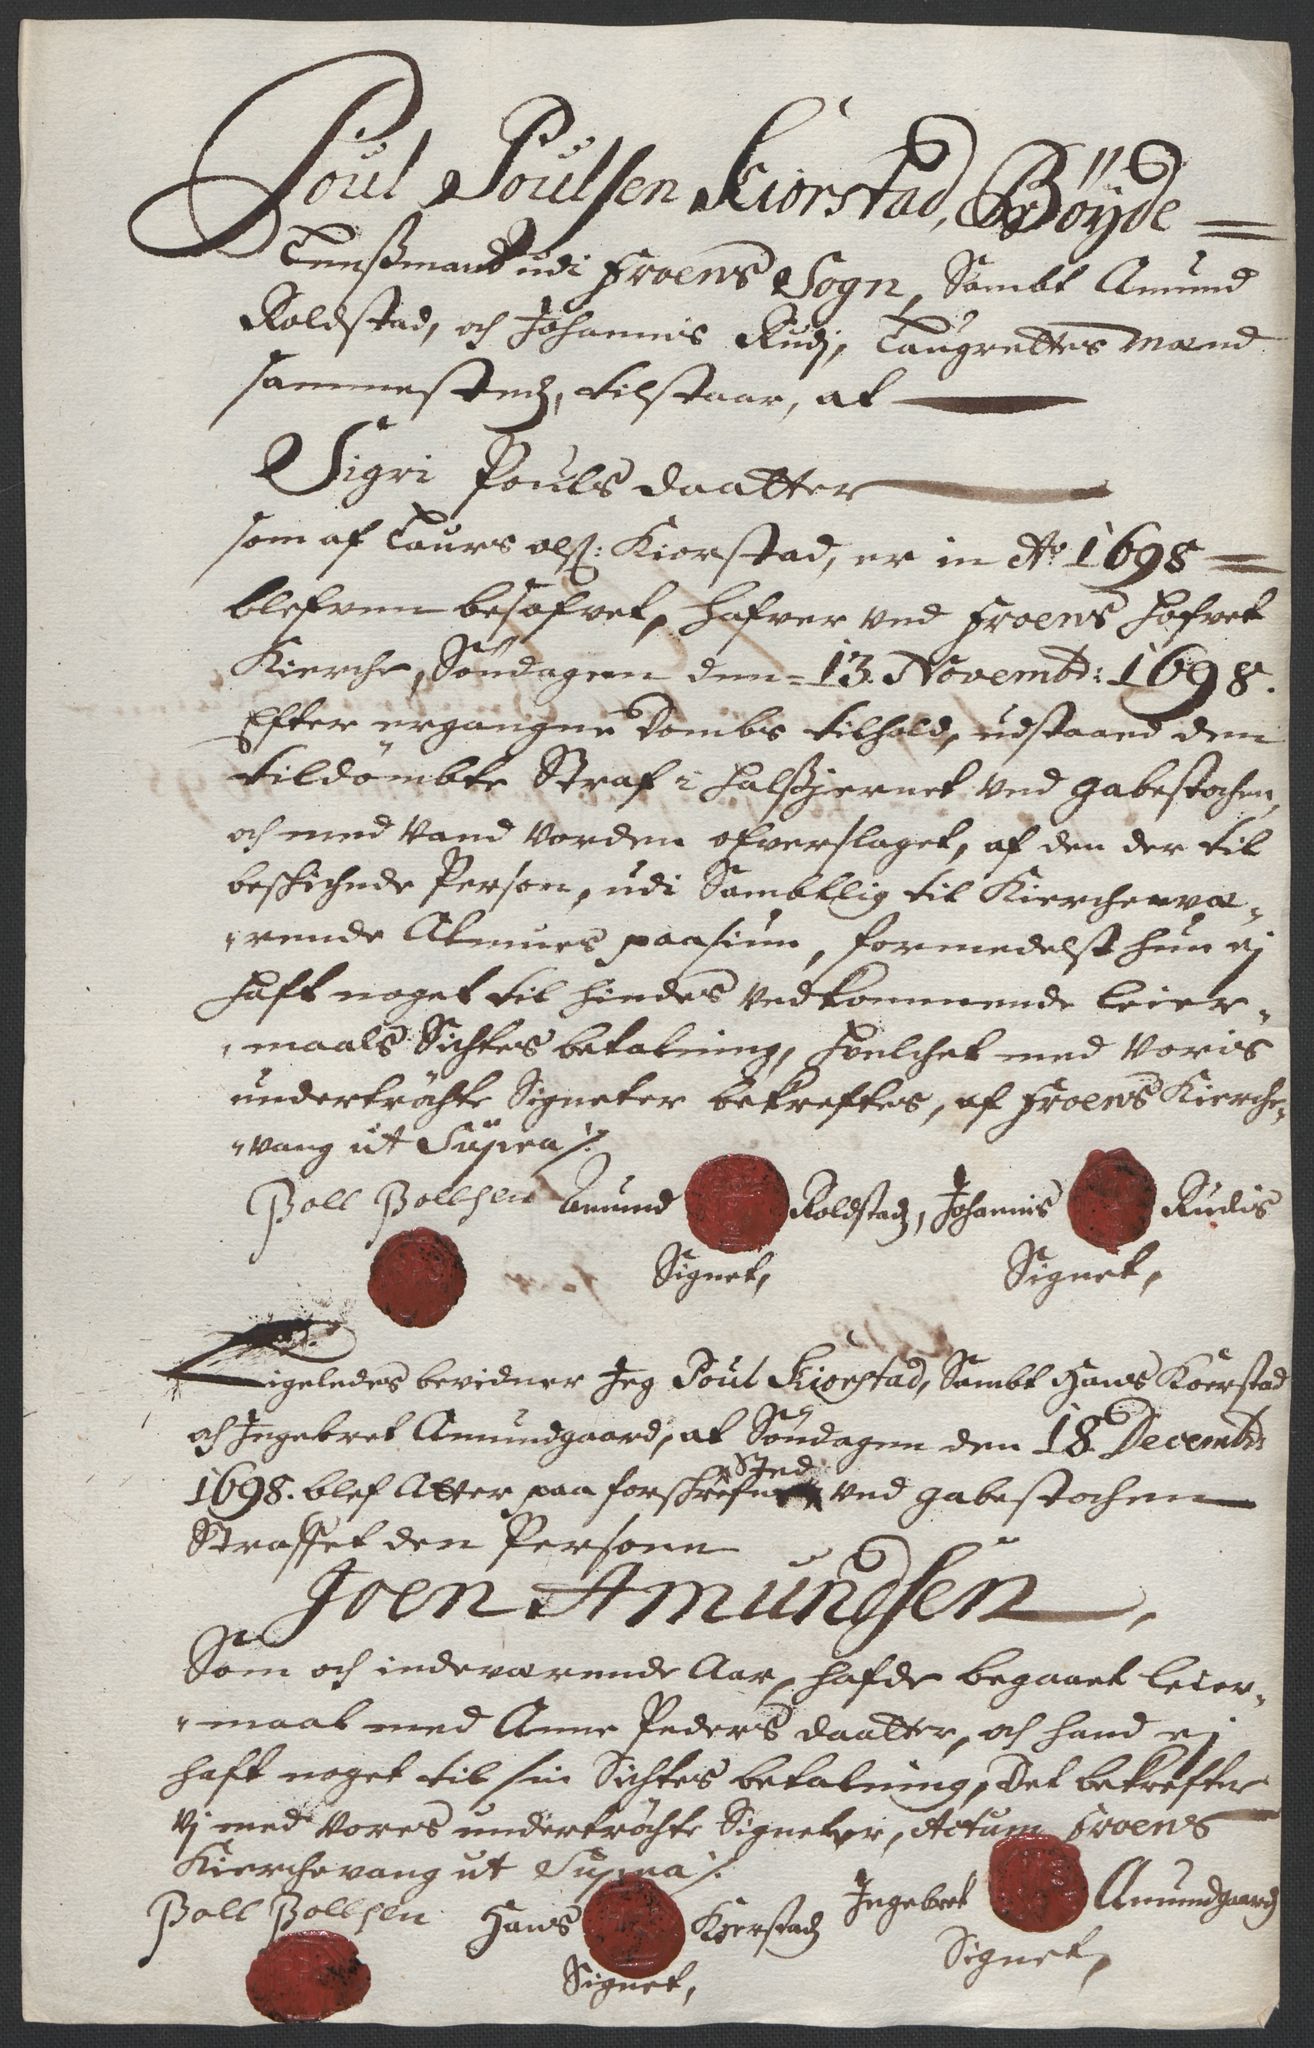 Poul Poulsen Kiorstad, Böyde =
Lensmand udi Froens Sogn, Sambt Amund
Roldstad, och Johannis Rudj, Laugrettes Mænd
sammestedz, tilstaar, at
Sigri Pouls daatter
som af Laurs Ols: Kiorstad, er in Ao 1698 =
blefven besofvet, hafver ved Froens Hofvet
Kierche, Söndagen den = 13. Novembr: 1698.
Efter ergangne Dombs tilhold, udstaaed den
tildömbte Straf i Halsjernet ved gabestochen,
och med Vand vorden ofverslaget, af den der til
beschichede Person, udi Sambtlig til Kierchen væ-
-rende Almues paasiun, formedelst hun ej
haft noget til hindes vedkommende leier-
-maals Sichtes betalning, hvelchet med voris
undertröchte Signeter bekreftes, af Froens Kierche-
-vang ut Supra /:
Poell Poellsen Amund Roldstadz, Johannis Rudis
Signet, Signet,
Ligeledes bevidner Jeg Poul Kiorstad, Sambt Hans Köerstad
och Ingebret Amundgaard, at Söndagen den 18 Decembr:
1698. blef Atter paa forschrefne Sted ved gabestochen
Straffet den Person
Joen Amundsen,
Som och indeværende Aar, hafde begaaet leier-
-maal med Anne Peders daatter, och hand ej
haft noget til sin Sichtes betalning, Det bekrefter
vj med vores undertröchte Signeter, Actum Froens
Kierchevang ut Supra /:
Poell Poellsen Hans Kjerstadz Ingebret Amundgaardz
Signet, Signet,